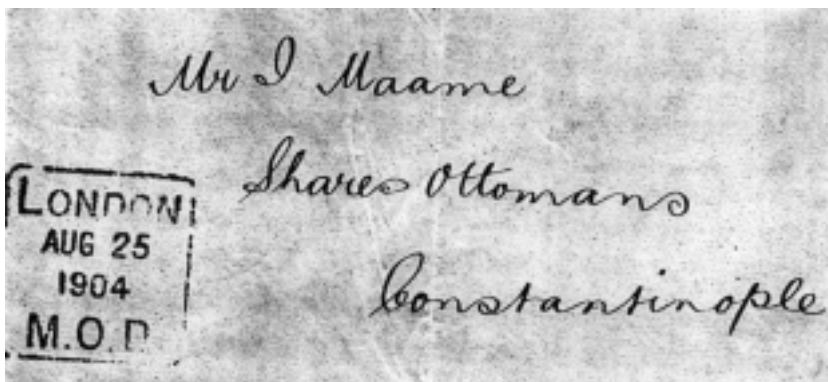 Mr I Maame
Shares Ottomans
Constantinople
LONDON
AUG 25
1904
M.O.P